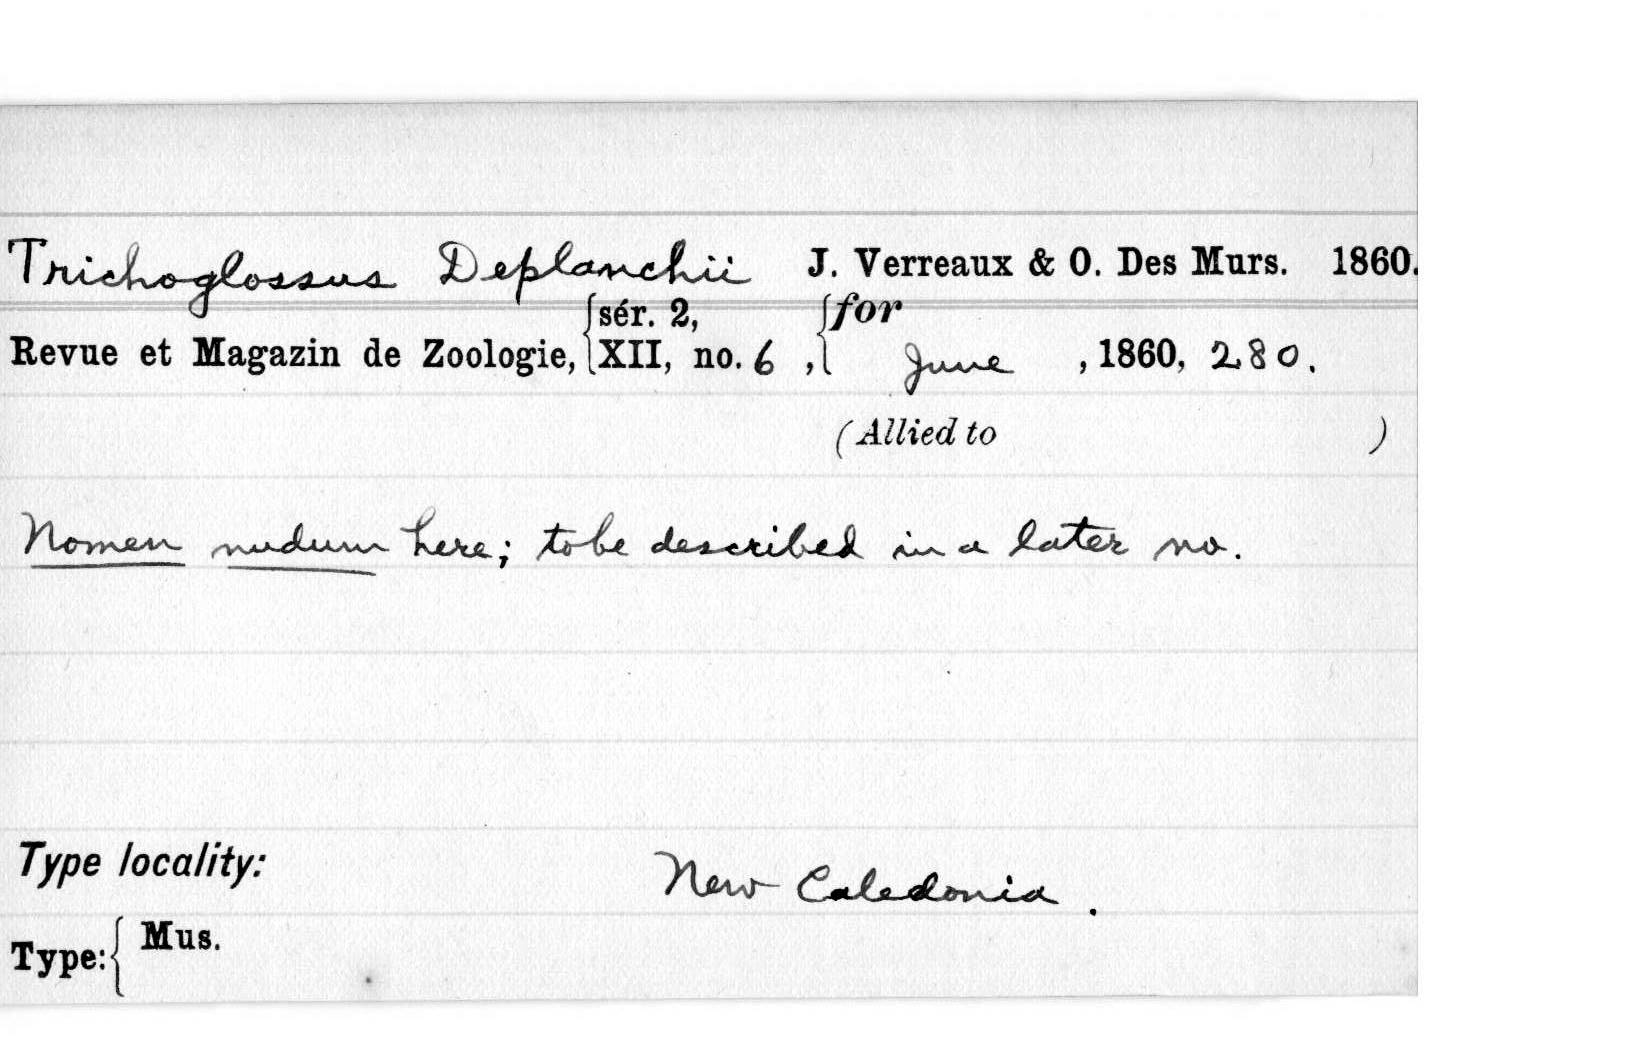 Trichoglossus Deplanchii J. Verreaux & O. Des Murs. 1860.
{sér. 2, {for
Revue et Magazin de Zoologie, XII, no. 6 , June , 1860, 280.
(Allied to )
Nomen nudum here; to be described in a later no.
Type locality: New Caledonia.
Type: { Mus.